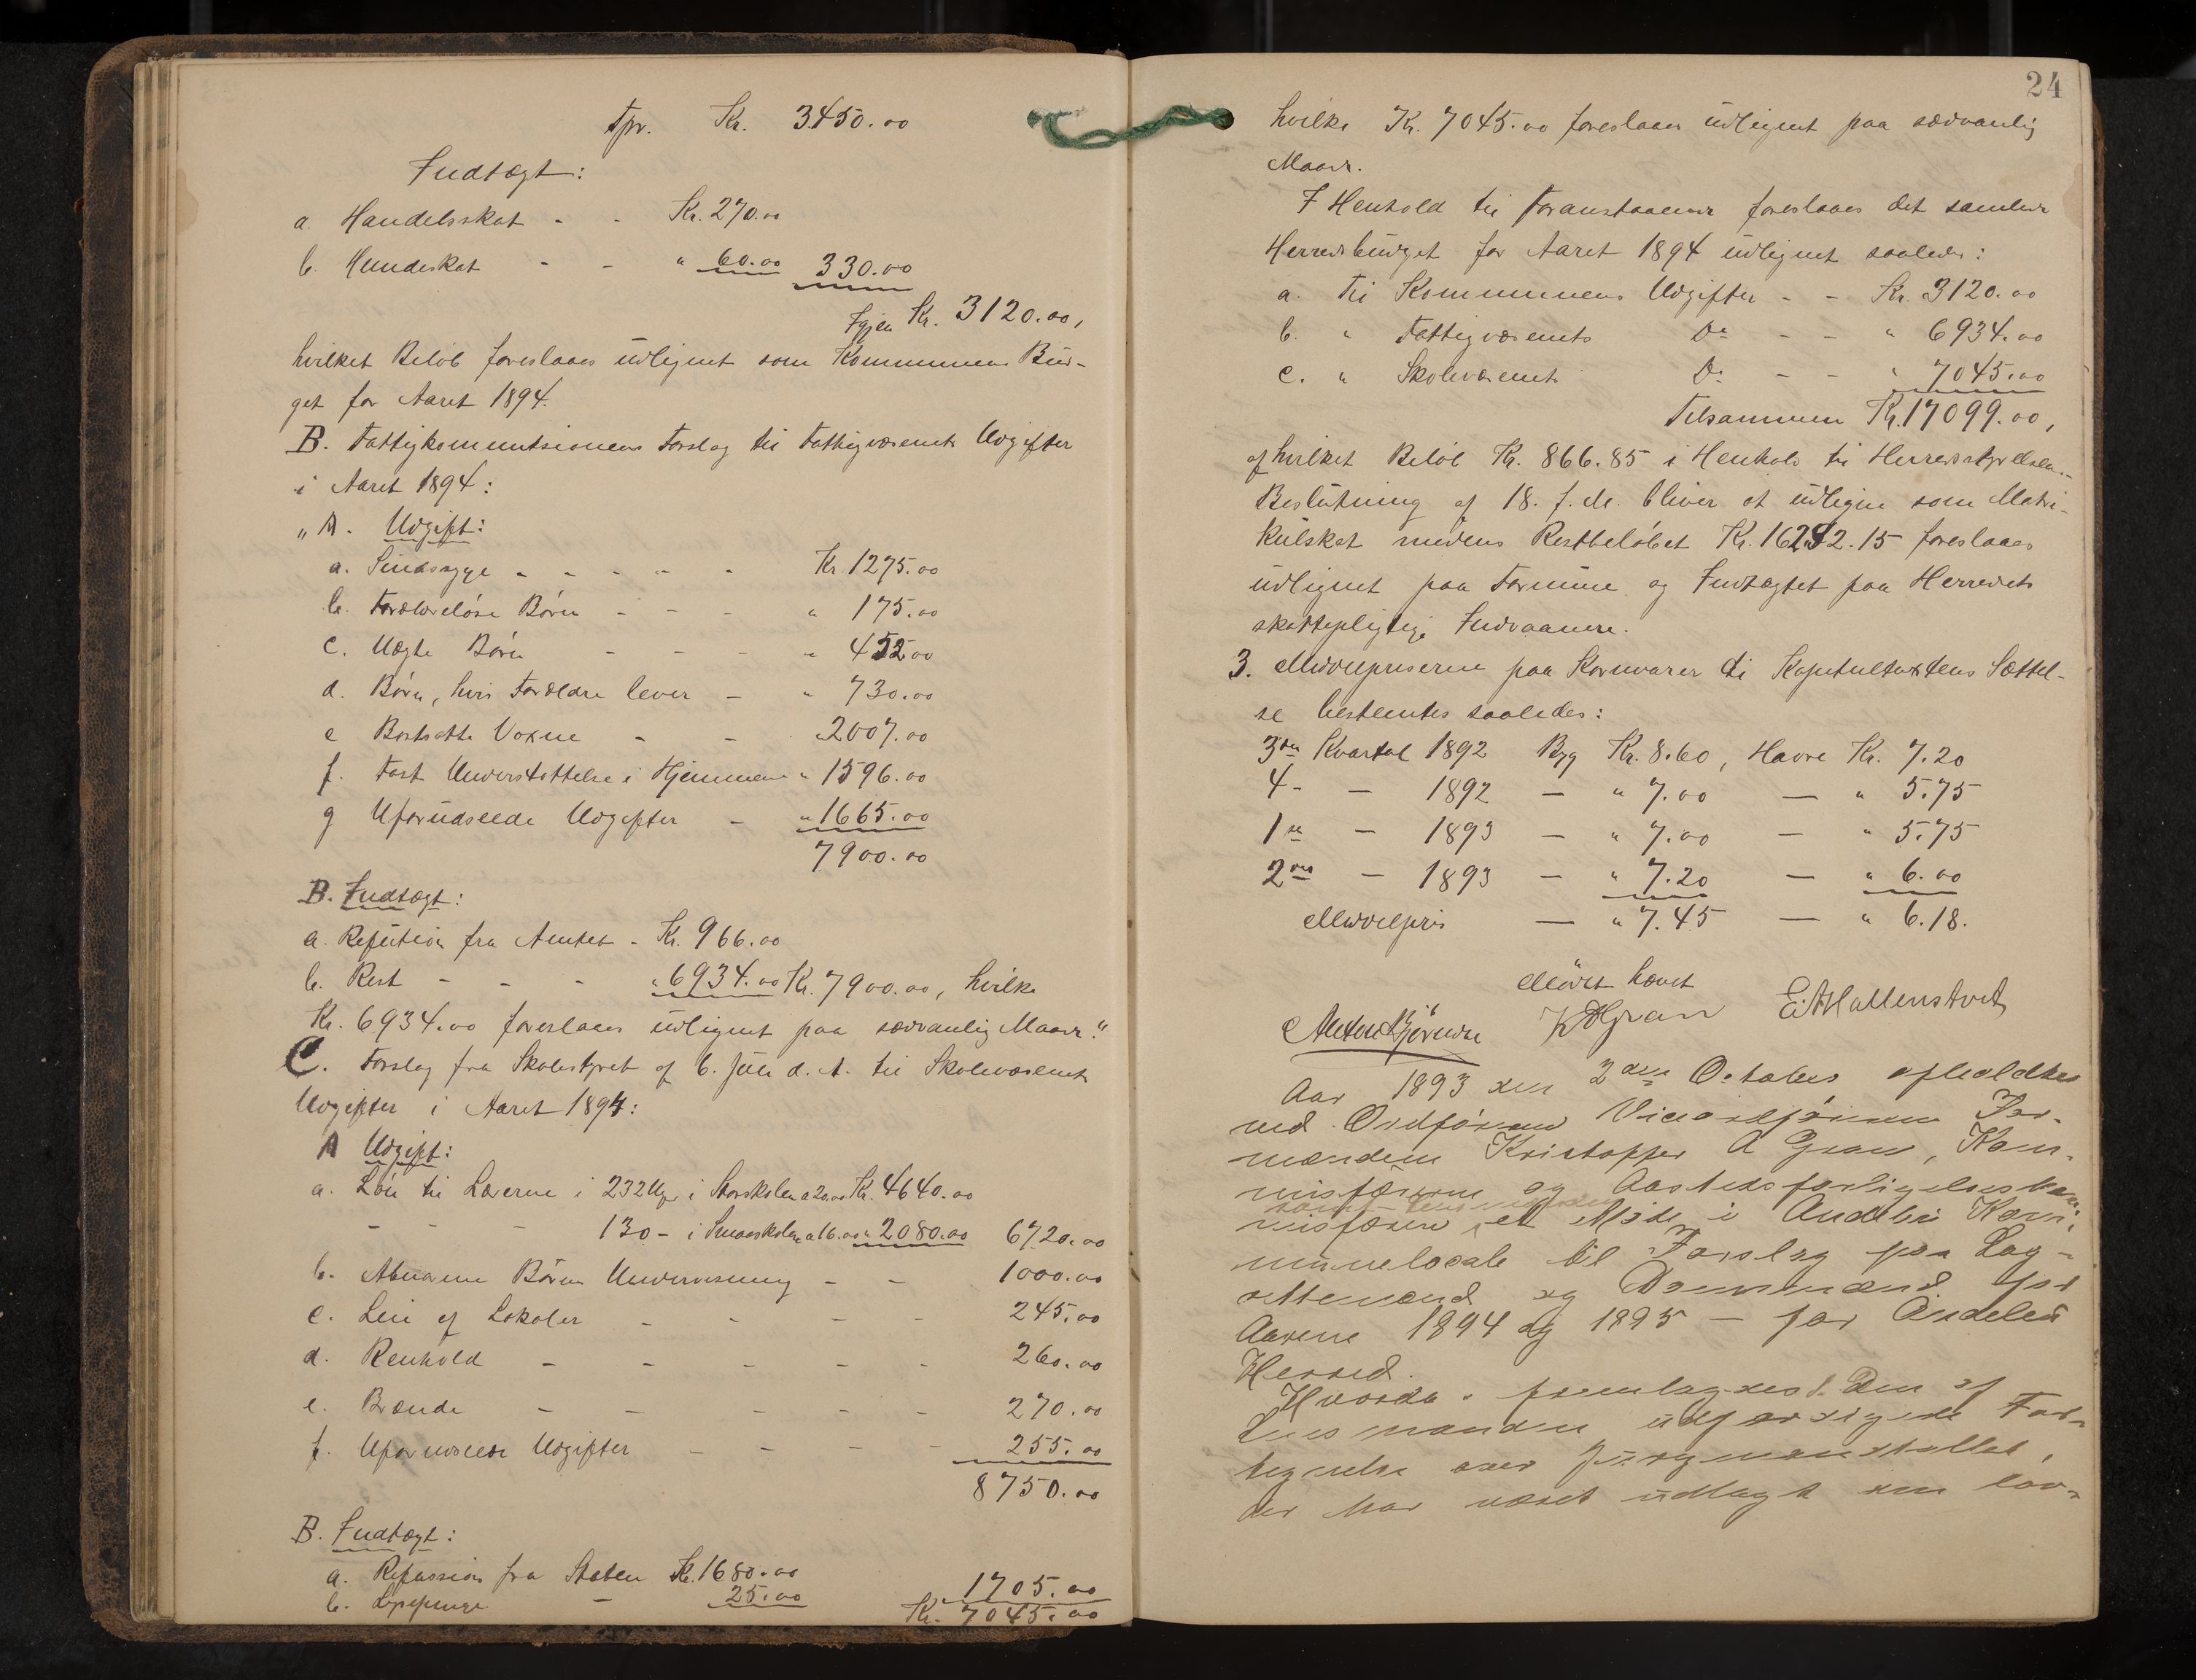 Tpr. Kr. 3450.00
Indtægt:
a. Handelsskat - - Kr. 270.00
b. Hundeskat - - " 60.00 330.00
Igjen Kr. 3120.00,
hvilket Beløb foreslaaes udlignet som Kommunens Bud-
get for Aaret 1894.
B. Fattigkommisionens Forslag til Fattigvæsenets Udgifter
i Aaret 1894:
"A. Udgift:
a. Sindssyge - - - - - Kr. 1275.00
b. Forældreløse Børn - - - " 175.00
c. Uægte Børn - - - " 452.00
d. Børn, hvis Forældre lever - " 730.00
e Bortsatte Voxne - - " 2007.00
f. Fast Understøttelse i Hjemmene " 1596.00
g Uforudseede Udgifter - " 1665.00
7900.00
B. Indtægt:
a. Refusion fra Amtet - Kr. 966.00
b. Rest - - - " 6934.00 Kr. 7900.00, hvilke
Kr. 6934.00 foreslaaes udlignet paa sædvanlig Maade."
C. Forslag fra Skolestyret af 6. Juli d. A. til Skolevæsenets
Udgifter i Aaret 1894:
A Udgift:
a. Løn til Lærerne i 232 Uger i Storskolen a 20.00 Kr. 4640.00
- - - 130 - i Smaaskolen a 16.00 " 2080.00 6720.00
b. Abnorme Børns Undervisning - - 1000.00
c. Leie af Lokaler - - - - 245.00
d. Renhold - - - - - 260.00
e. Brænde - - - - - 270.00
f. Uforudseede Udgifter - - - - 255.00
8750.00
B. Indtægt:
a. Refusion fra Staten Kr. 1680.00
b. - 25.00 1705.00
Kr. 7045.00
24
hvilke Kr. 7045.00 foreslaaes udlignet paa sædvanlig
Maade.
I Henhold til Foranstaaende foreslaaes det samlede
Herredsbudget for Aaret 1894 udlignet saaledes:
a. Til Kommunens Udgifter - - Kr. 3120.00
b. " Fattigvæsenets Do - - " 6934.00
c. " Skolevæsenets Do - - " 7045.00
Tilsammen Kr. 17099.00,
af hvilket Beløb Kr. 866.85 i Henhold til Herredsstyrelsens
Beslutning af 18. f. M. bliver at udligne som Matri-
kulskat medens Restbeløbet Kr. 16232.15 foreslaaes
udlignet paa Formue og Indtægtet paa Herredets
skattepligtige Indvaanere.
3. Middelpriserne paa Kornvarer til Kapitulstaxtens Sættel-
se bestemtes saaledes:
3die Kvartal 1892 Byg Kr. 8.60, Havre Kr. 7.20
4- - 1892 - " 7.00 - " 5.75
1ste - 1893 - " 7.00 - " 5.75
2det - 1893 - " 7.20 - " 6.00
Middelpris - " 7.45 - " 6.18.
Mødet hævet
K A Gran E. A. Hallenstvet
Aar 1893 den 2den October afholdtes
ved Ordføreren Viceordføreren For-
manden Kristoffer A Gran, Kom-
misfærerne og Aastedsforligelseskom-
misfærere et Møde i Andebu Kom-
munelocale til Forslag paa Lag-
rettemænd og Domsmænd for
Aarene 1894 og 1895 - for Andebu
Herred.
Hvorda fremlagdes: Den af
Lensmanden udfærdigede For-
tegnelse over Jurymandstallet,
der har været udlagt den lov-